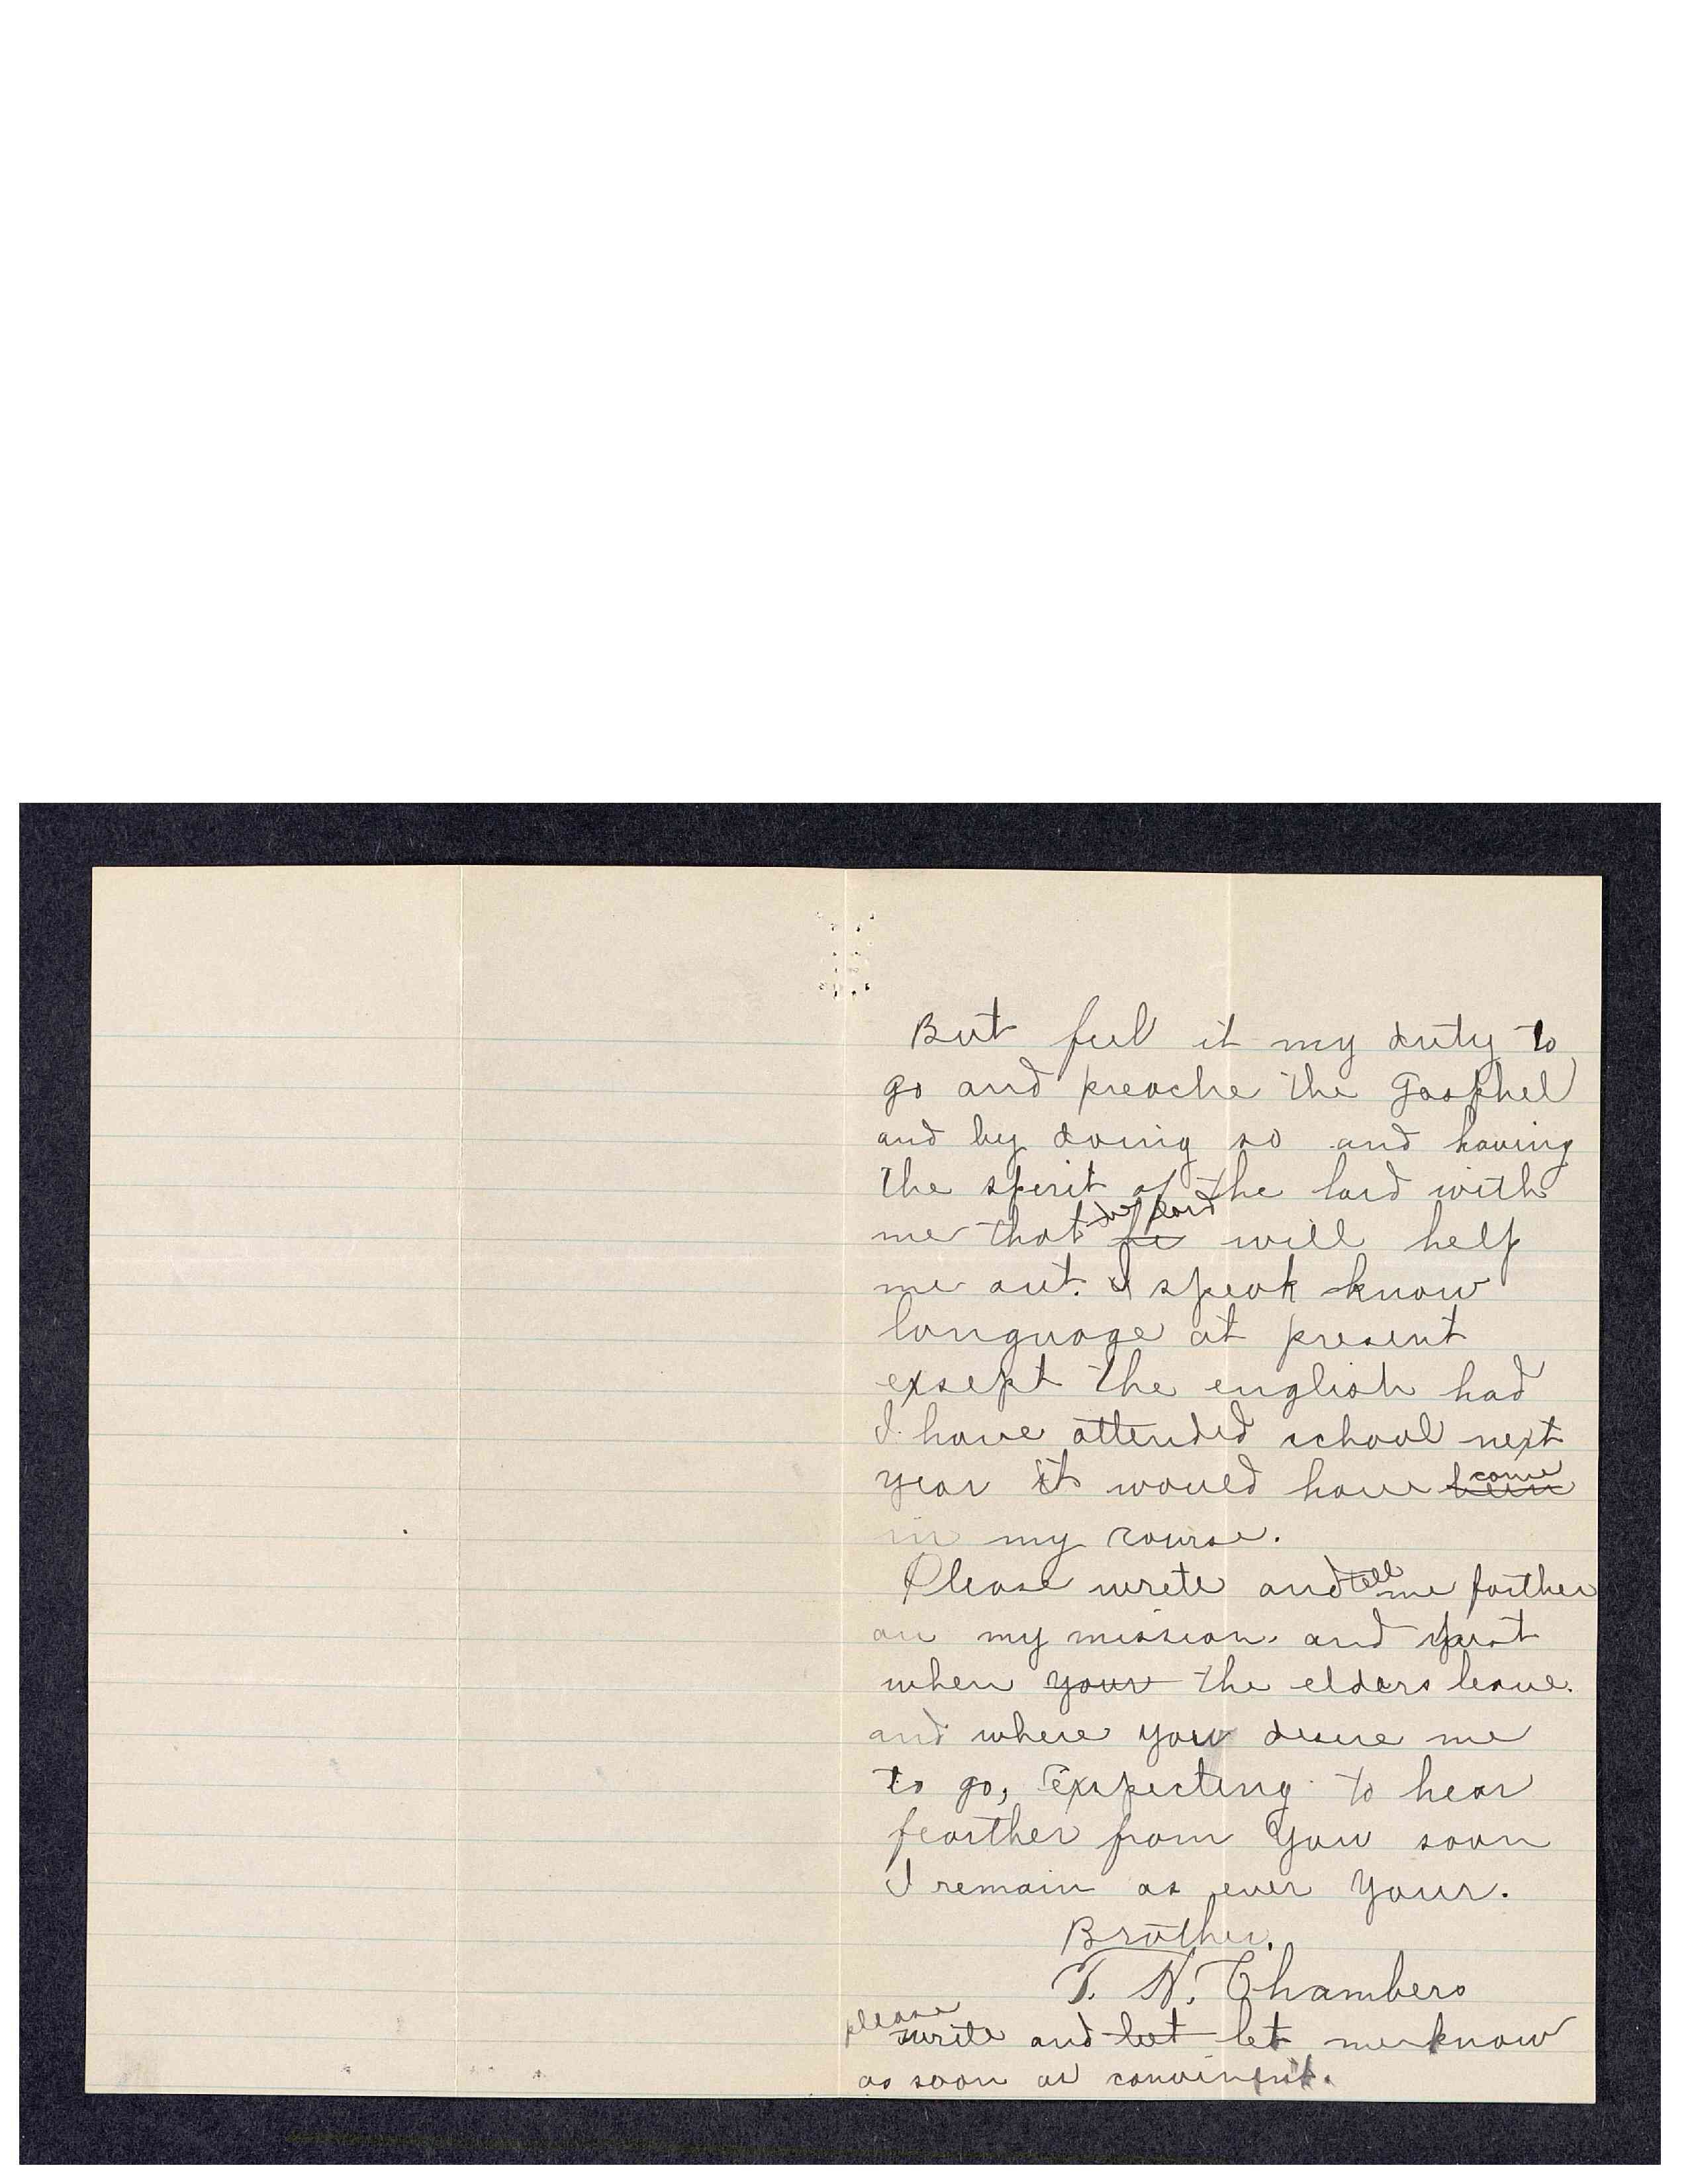 But feel it my duty to
go and preache the Gosphel
and by doing so and having
the spirit of the lord with
me that the lord he will help
me out. I speak know
language at present
exsept the english had
I have attended school next
year it would have been come
in my course.
Please write and tell me farther
on my mission. and
when your the elders leave.
and where you desire me
to go, Expecting to hear
fearther from you soon
I remain as ever your.
Brother.
T. N. Chambers
please write and let let me know
as soon as convinent.